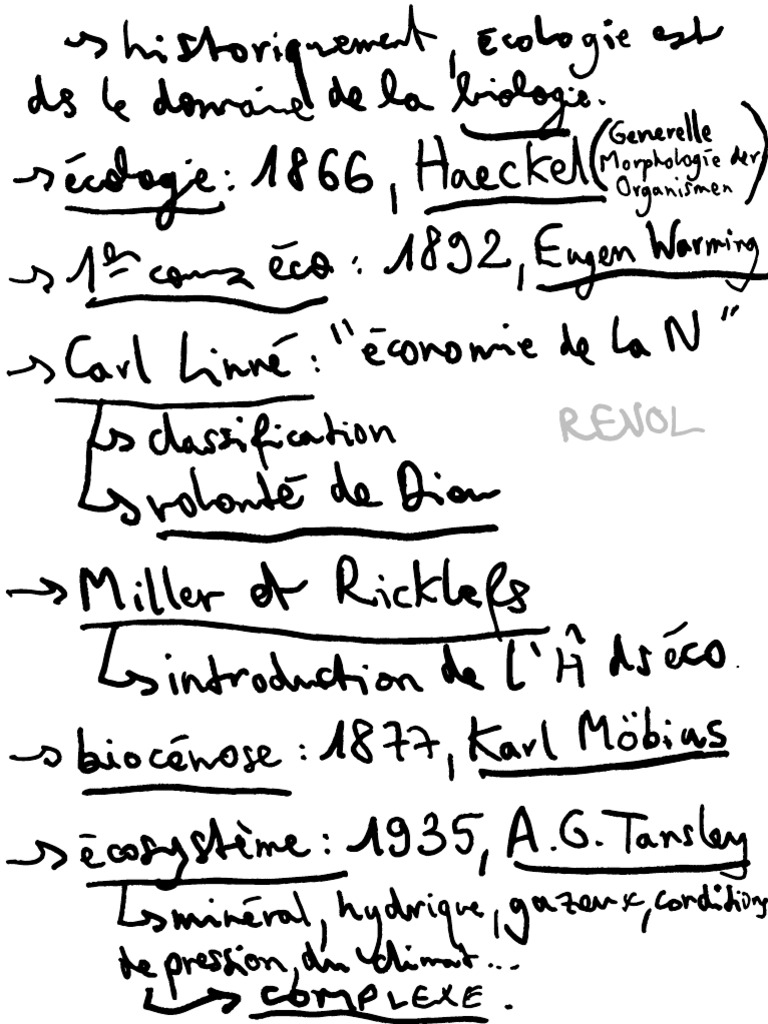 → historiquement, écologie est
ds le domaine de la biologie.
→ écologie : 1866, Haeckel (Generelle
Morphologie der
Organismen)
→ 1er cours éco : 1892, Eugen Warming
→ Carl Linné : "économie de la N"
↳ classification
RENOL
↳ volonté de Dieu
→ Miller et Ricklefs
↳ introduction de l'Ĥ ds éco.
→ biocénose : 1877, Karl Möbius
→ écosystème : 1935, A.G. Tansley
↳ minéral, hydrique, gazeux, conditions
de pression, du climat...
↳ COMPLEXE.